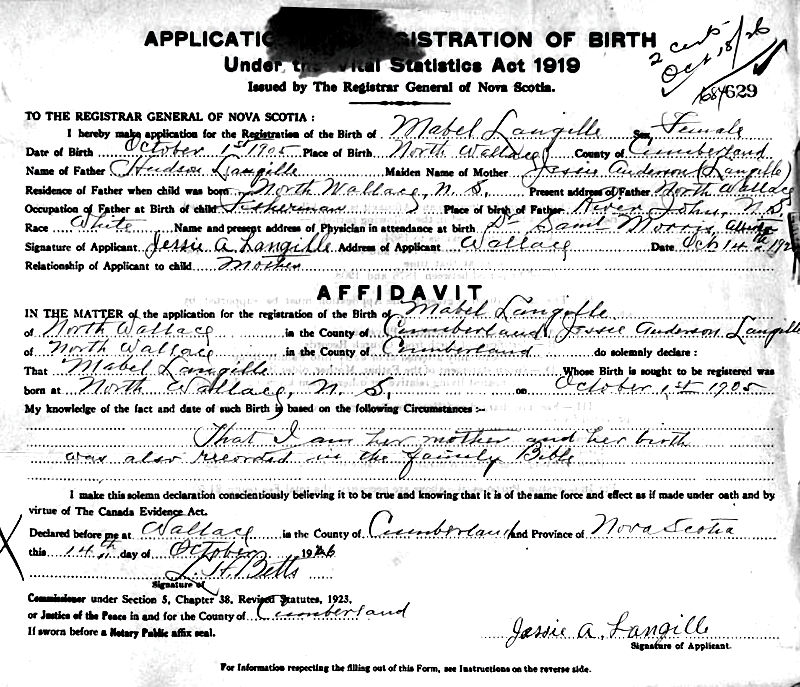 APPLICATIO ISTRATION OF BIRTH
Under the Vital Statistics Act 1919
Issued by The Registrar General of Nova Scotia.
2 certs
Oct 18/26
629
TO THE REGISTRAR GENERAL OF NOVA SCOTIA:
I hereby make application for the Registration of the Birth of Mabel Langille Sex Female
Date of Birth October 1st 1905 Place of Birth North Wallace County of Cumberland
Name of Father Hudson Langille Maiden Name of Mother Jessie Anderson (Langille)
Residence of Father when child was born North Wallace, N. S. Present address of Father North Wallace
Occupation of Father at Birth of child Fisherman Place of birth of Father River John, N. S.
Race White Name and present address of Physician in attendance at birth Dr Morris,
Signature of Applicant Jessie A Langille Address of Applicant Wallace Date Oct 14th 192
Relationship of Applicant to child Mother
AFFIDAVIT
IN THE MATTER of the application for the registration of the Birth of Mabel Langille
of North Wallace in the County of Cumberland Jessie Anderson Langille
of North Wallace in the County of Cumberland do solemnly declare:
That Mabel Langille Whose Birth is sought to be registered was
born at North Wallace, N. S. on October 1st 1905
My knowledge of the fact and date of such Birth is based on the following Circumstances:-
That I am her mother and her birth
was also recorded in the family Bible
I make this solemn declaration conscientiously believing it to be true and knowing that it is of the same force and effect as if made under oath and by
virtue of The Canada Evidence Act.
Declared before me at Wallace in the County of Cumberland and Province of Nova Scotia
this 14th day of October 1926
L. H. Betts
Signature of
Commissioner under Section 5, Chapter 38, Revised Statutes, 1923,
or Justice of the Peace in and for the County of Cumberland
If sworn before a Notary Public affix seal.
Jessie A. Langille
Signature of Applicant.
For Information respecting the filling out of this Form, see Instructions on the reverse side.